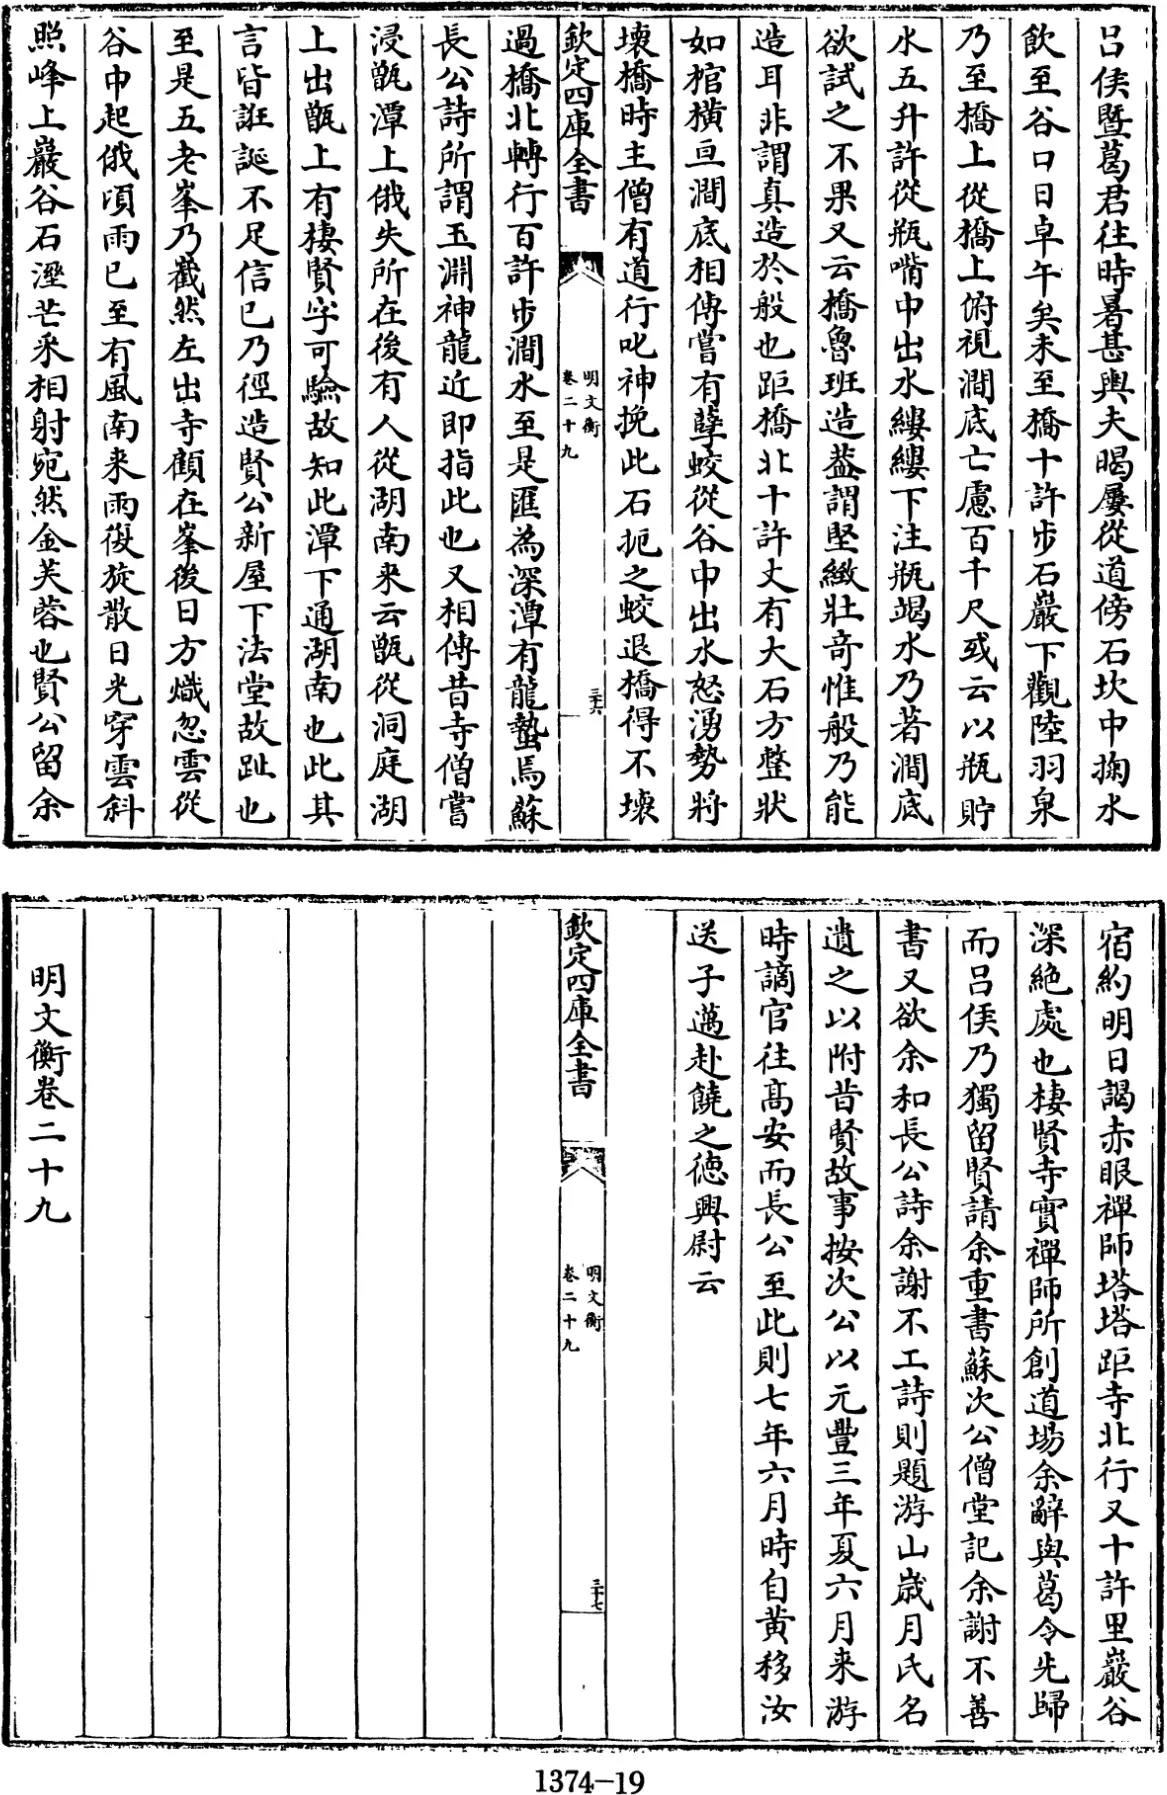 呂侯暨葛君往時暑甚輿夫暍屢從道傍石坎中掬水
飲至谷口日卓午矣未至橋十許步石巖下觀陸羽泉
乃至橋上從橋上俯視澗底亡慮百千尺或云以瓶貯
水五升許從瓶嘴中出水縷縷下注瓶竭水乃若澗底
欲試之不果又云橋魯班造葢謂堅緻壯奇惟般乃能
造耳非謂真造於般也距橋北十許丈有大石方整狀
如棺橫亘澗底相傳嘗有孽蛟從谷中出水怒湧勢將
壞橋時主僧有道行叱神挽此石扼之蛟退橋得不壞
欽定四庫全書
明文衡
卷二十九
三十六
過橋北轉行百許步澗水至是匯為深潭有龍蟄焉蘇
長公詩所謂玉淵神龍近即指此也又相傳昔寺僧嘗
浸甑潭上俄失所在後有人從湖南來云甑從洞庭湖
上出甑上有棲賢字可驗故知此潭下通湖南也此其
言皆誑誕不足信已乃徑造賢公新屋下法堂故趾也
至是五老峯乃截然左出寺顧在峯後日方熾忽雲從
谷中起俄頃雨已至有風南來雨復旋散日光穿雲斜
照峰上巖谷石溼芒采相射宛然金芙蓉也賢公留余
宿約明日謁赤眼禪師塔塔距寺北行又十許里巖谷
深絶處也棲賢寺實禪師所創道場余辭與葛令先歸
而呂侯乃獨留賢請余重書蘇次公僧堂記余謝不善
書又欲余和長公詩余謝不工詩則題游山歲月氏名
遺之以附昔賢故事按次公以元豐三年夏六月來游
時謫官往高安而長公至此則七年六月時自黄移汝
送子邁赴饒之德興尉云
欽定四庫全書
明文衡
卷二十九
三十七
明文衡卷二十九
1374-19